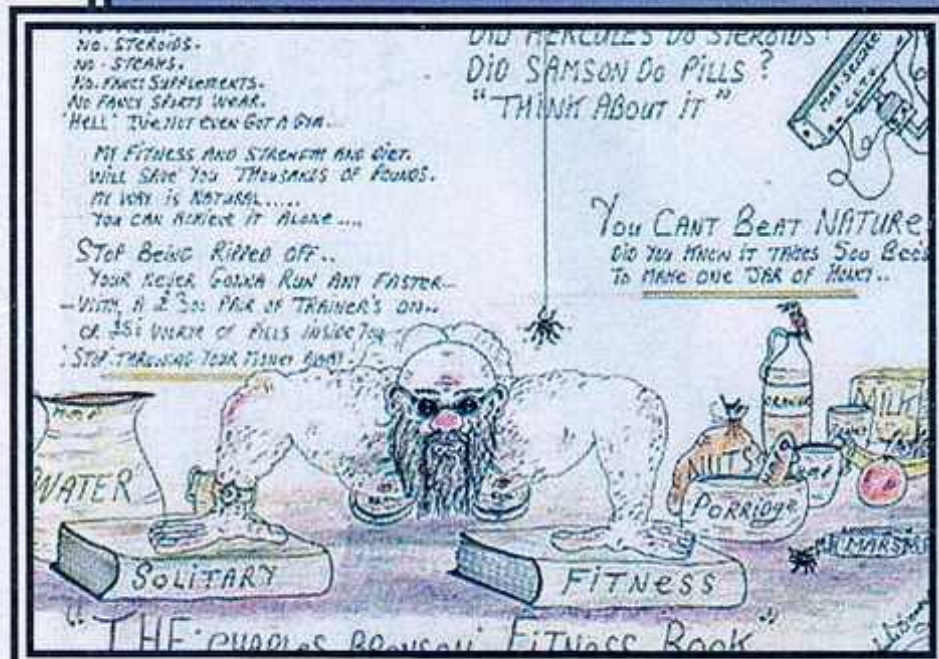 NO. STEROIDS.
NO - STEAKS.
NO. FANCY SUPPLEMENTS.
NO FANCY SPORTS WEAR.
'HELL' I'VE NOT EVEN GOT A GYM...
MY FITNESS AND STRENGTH AND DIET.
WILL SAVE YOU THOUSANDS OF POUNDS.
MY WAY IS NATURAL.....
YOU CAN ACHIEVE IT ALONE....
STOP BEING RIPPED OFF..
YOUR NEVER GONNA RUN ANY FASTER-
- WITH A £300 PAIR OF TRAINER'S ON..
OR £50 WORTH OF PILLS INSIDE YOU
'STOP THROWING YOUR MONEY AWAY'!
DID HERCULES DO STEROIDS?
DID SAMSON DO PILLS?
"THINK ABOUT IT"
MAX-SECURE
YOU CANT BEAT NATURE
DID YOU KNOW IT TAKES 500 BEES
TO MAKE ONE JAR OF HONEY..
WATER
NUTS
ORANGE
MILK
PORRIDGE
MARS
SOLITARY
FITNESS
"THE 'CHARLES BRONSON' FITNESS BOOK"